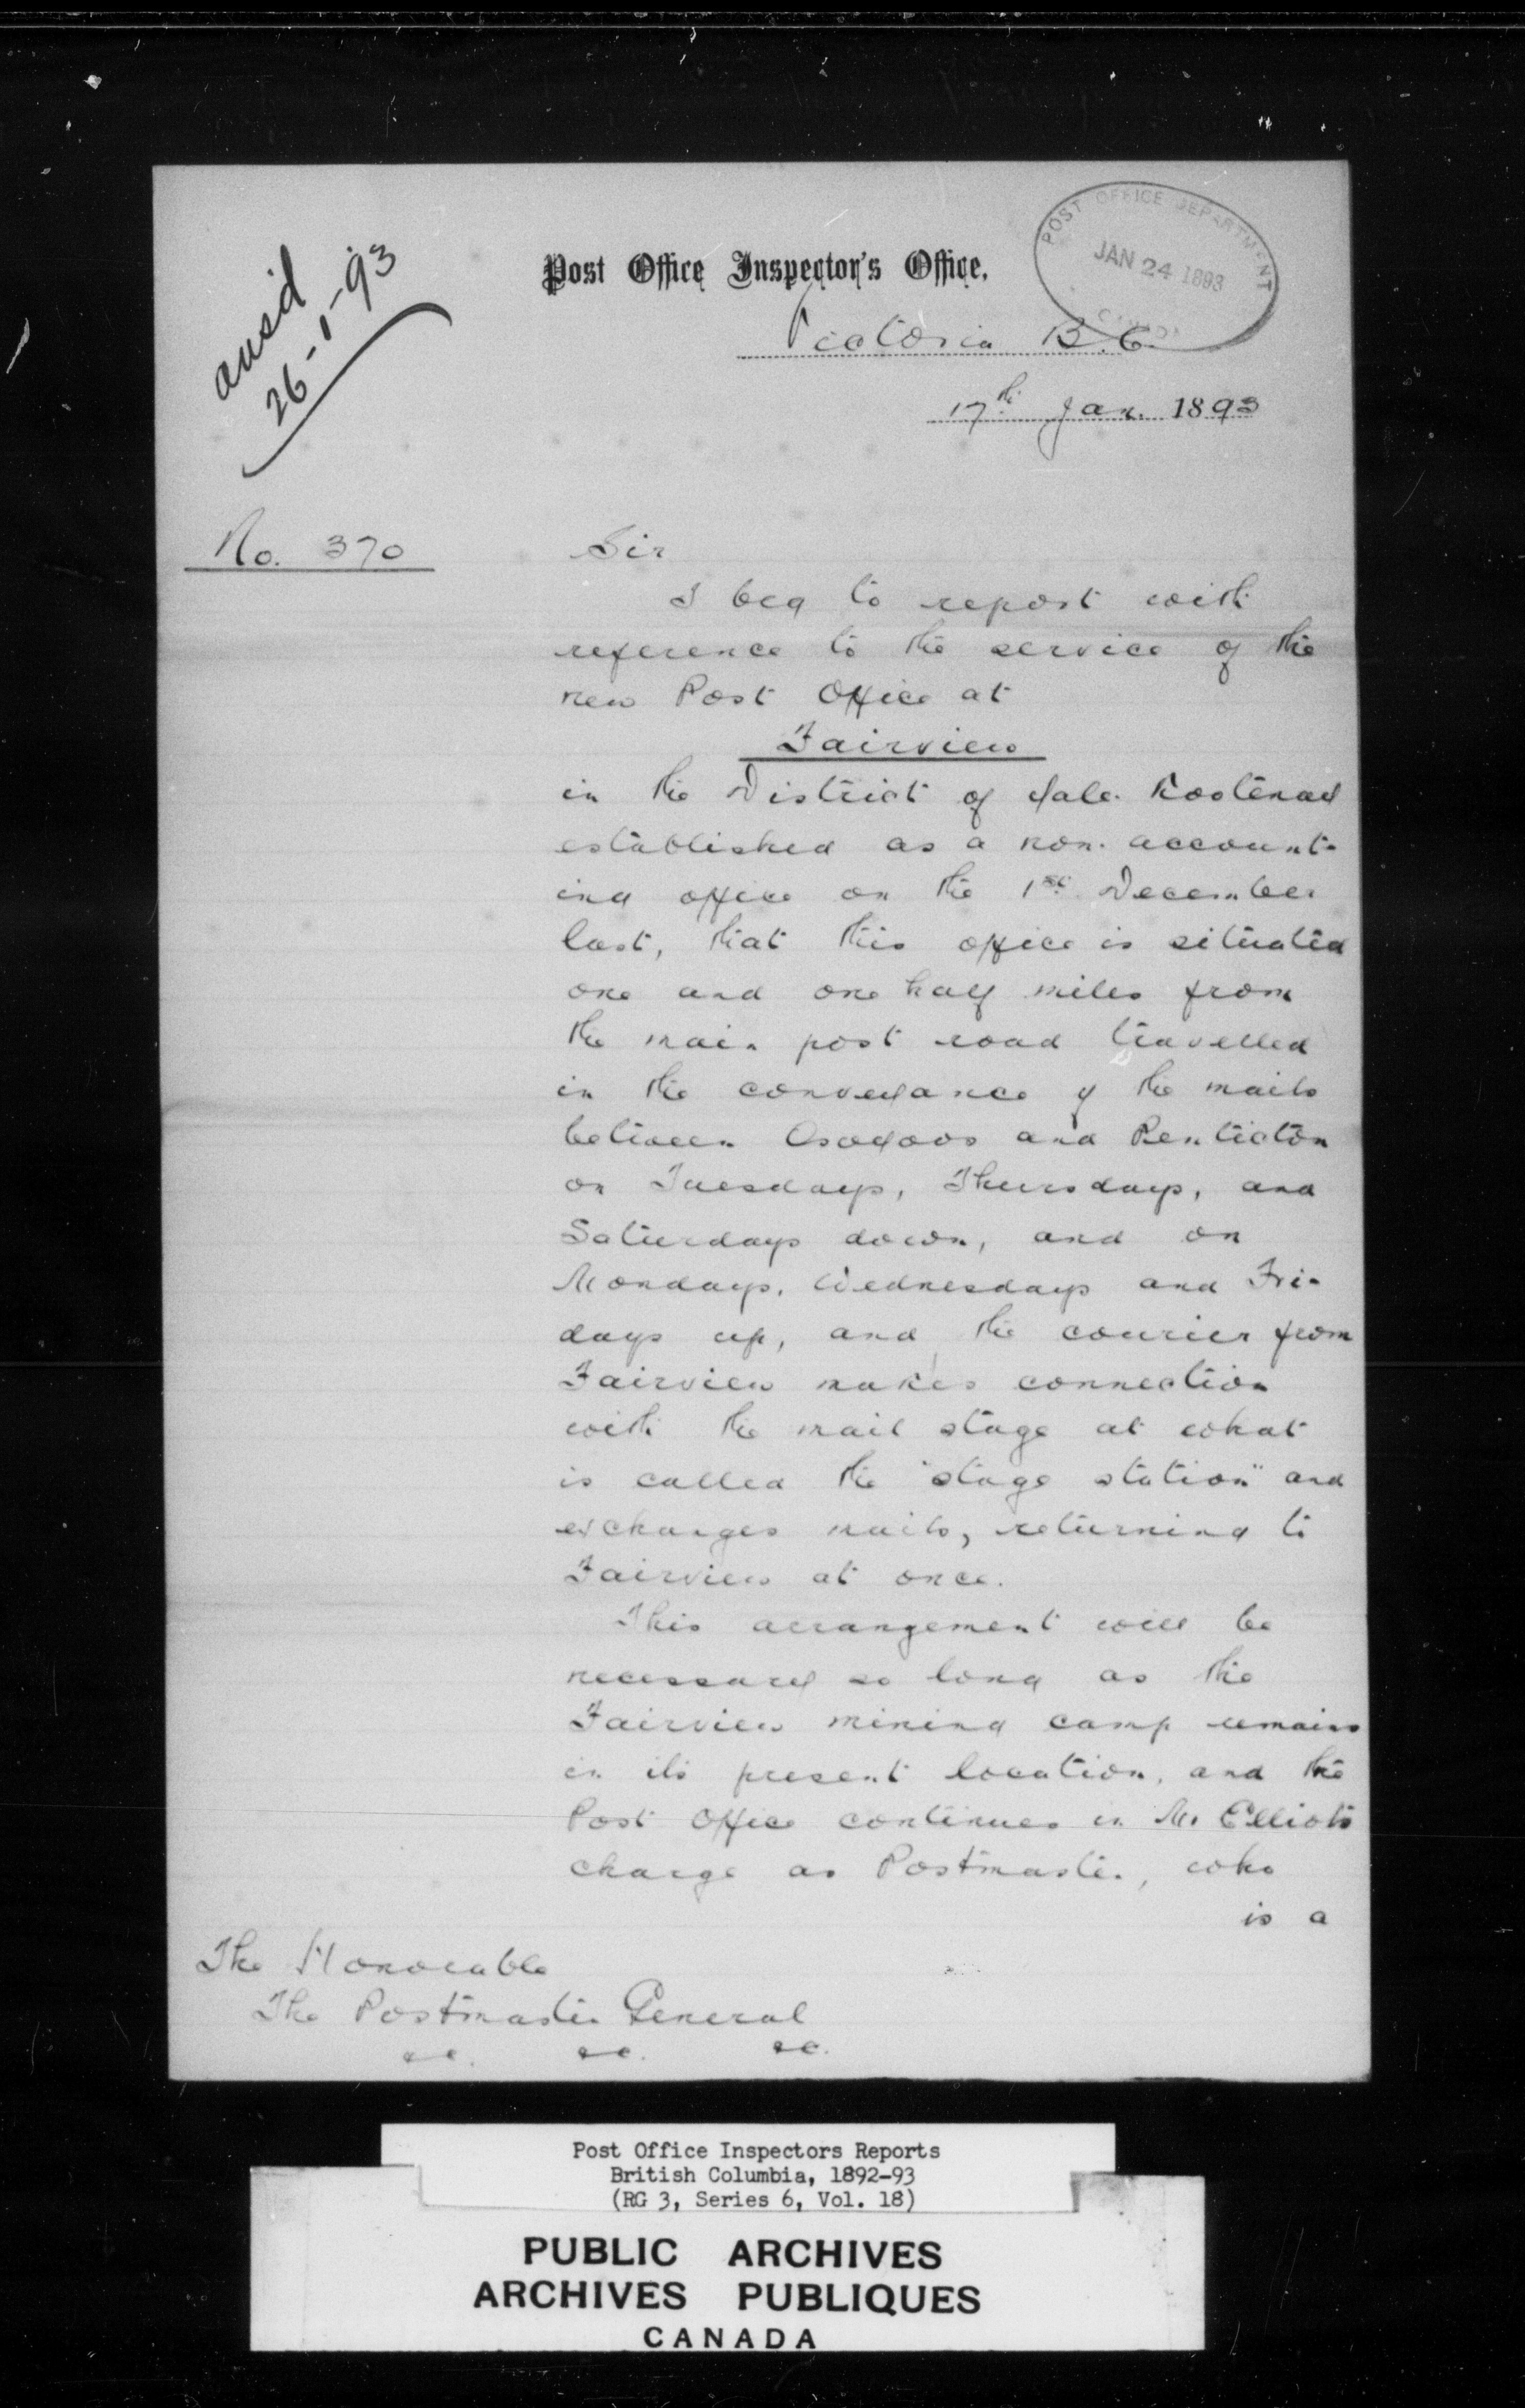 ansd
26-1-93
Post Office Inspector's Office.
POST OFFICE DEPARTMENT
JAN 24 1893
CANADA
Victoria B.C.
17th Jan. 1893
No. 370
Sir
I beg to report with
reference to the service of the
new Post Office at
Fairview
in the District of Yale-Kootenay
established as a non-account-
ing office on the 1st December
last, that this office is situated
one and one half miles from
the main post road travelled
in the conveyance of the mails
between Osoyoos and Penticton
on Tuesdays, Thursdays, and
Saturdays down, and on
Mondays, Wednesdays and Fri-
days up, and the courier from
Fairview makes connection
with the mail stage at what
is called the "stage station" and
exchanges mails, returning to
Fairview at once.
This arrangement will be
necessary so long as the
Fairview mining camp remains
in its present location, and the
Post Office continues in Mr Elliots
charge as Postmaster, who
is a
The Honorable
The Postmaster General
&c. &c. &c.
Post Office Inspectors Reports
British Columbia, 1892-93
(RG 3, Series 6, Vol. 18)
PUBLIC ARCHIVES
ARCHIVES PUBLIQUES
CANADA